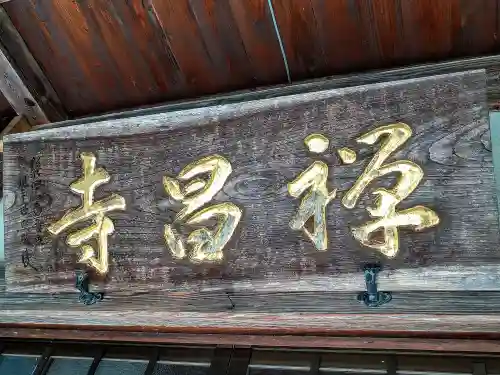 禅昌寺